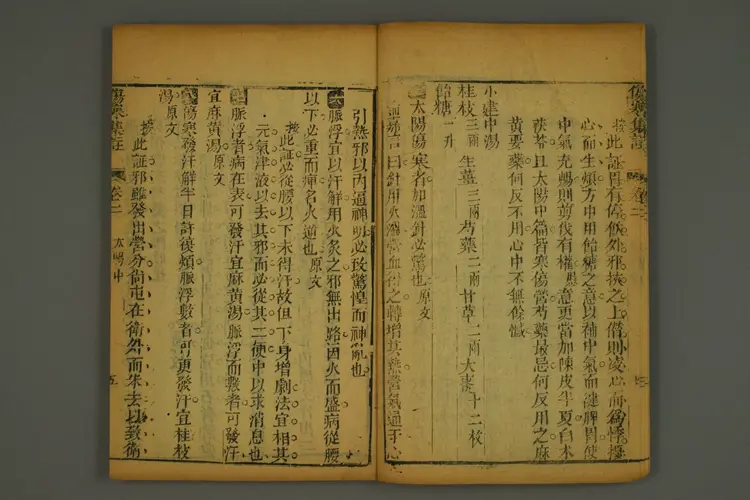 傷寒集註
卷二
按此証旣有停飮外邪挾之上僭則凌心而爲悸擾
心而生煩方中用飴糖之意以補中氣而建脾胃使
中氣充暢則剪伐有權愚意更當加陳皮半夏白木
茯苓且太陽中篇皆寒傷營芍藥最忌何反用之麻
黃要藥何反不用心中不無餘憾
小建中湯
桂枝三兩 生薑三兩 芍藥二兩 甘草二兩 大棗十二枚
飴糖一升
太陽傷寒者加溫針必驚也原文
曰針用火溫營血得之轉增其熱營氣通于心
引熱邪以內逼神明必致驚惶而神亂也
脈浮宜以汗解用火灸之邪無出路因火而盛病從腰
以下必重而痺名火逆也原文
按此証必從腰以下未得汗故但下身增劇法宜相其
元氣津液以去其邪而必從其二便中以求消息也
脈浮者病在表可發汗宜麻黃湯脈浮而數者可發汗
宜麻黃湯原文
傷寒發汗解半日許復煩脈浮數者可更發汗宜桂枝
湯原文
按此証邪雖發出營分尙屯在衛外而未去以致衛
傷寒集註
卷二
太陽中